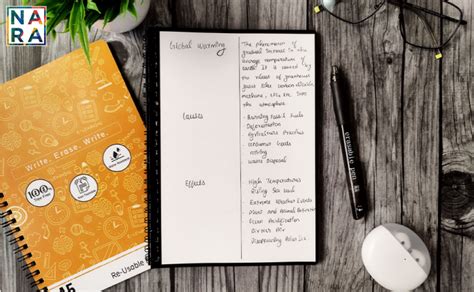 NA
RA
Write. Erase. Write.
100%
Re-Usable
A5
Global Warming
The phenomenon of
gradual increase in the
average temperature of
earth. It is caused by
the release of greenhouse
gases like carbon dioxide,
methane, into
the atmosphere
Causes
- Burning Fossil Fuels
- Deforestation
- Agriculture Practices
- Consumer Goods
- Waste Disposal
Effects
- High Temperatures
- Rising Sea Level
- Extreme Weather Events
- Plant and Animal Extinction
- Ocean Acidification
erasable pen